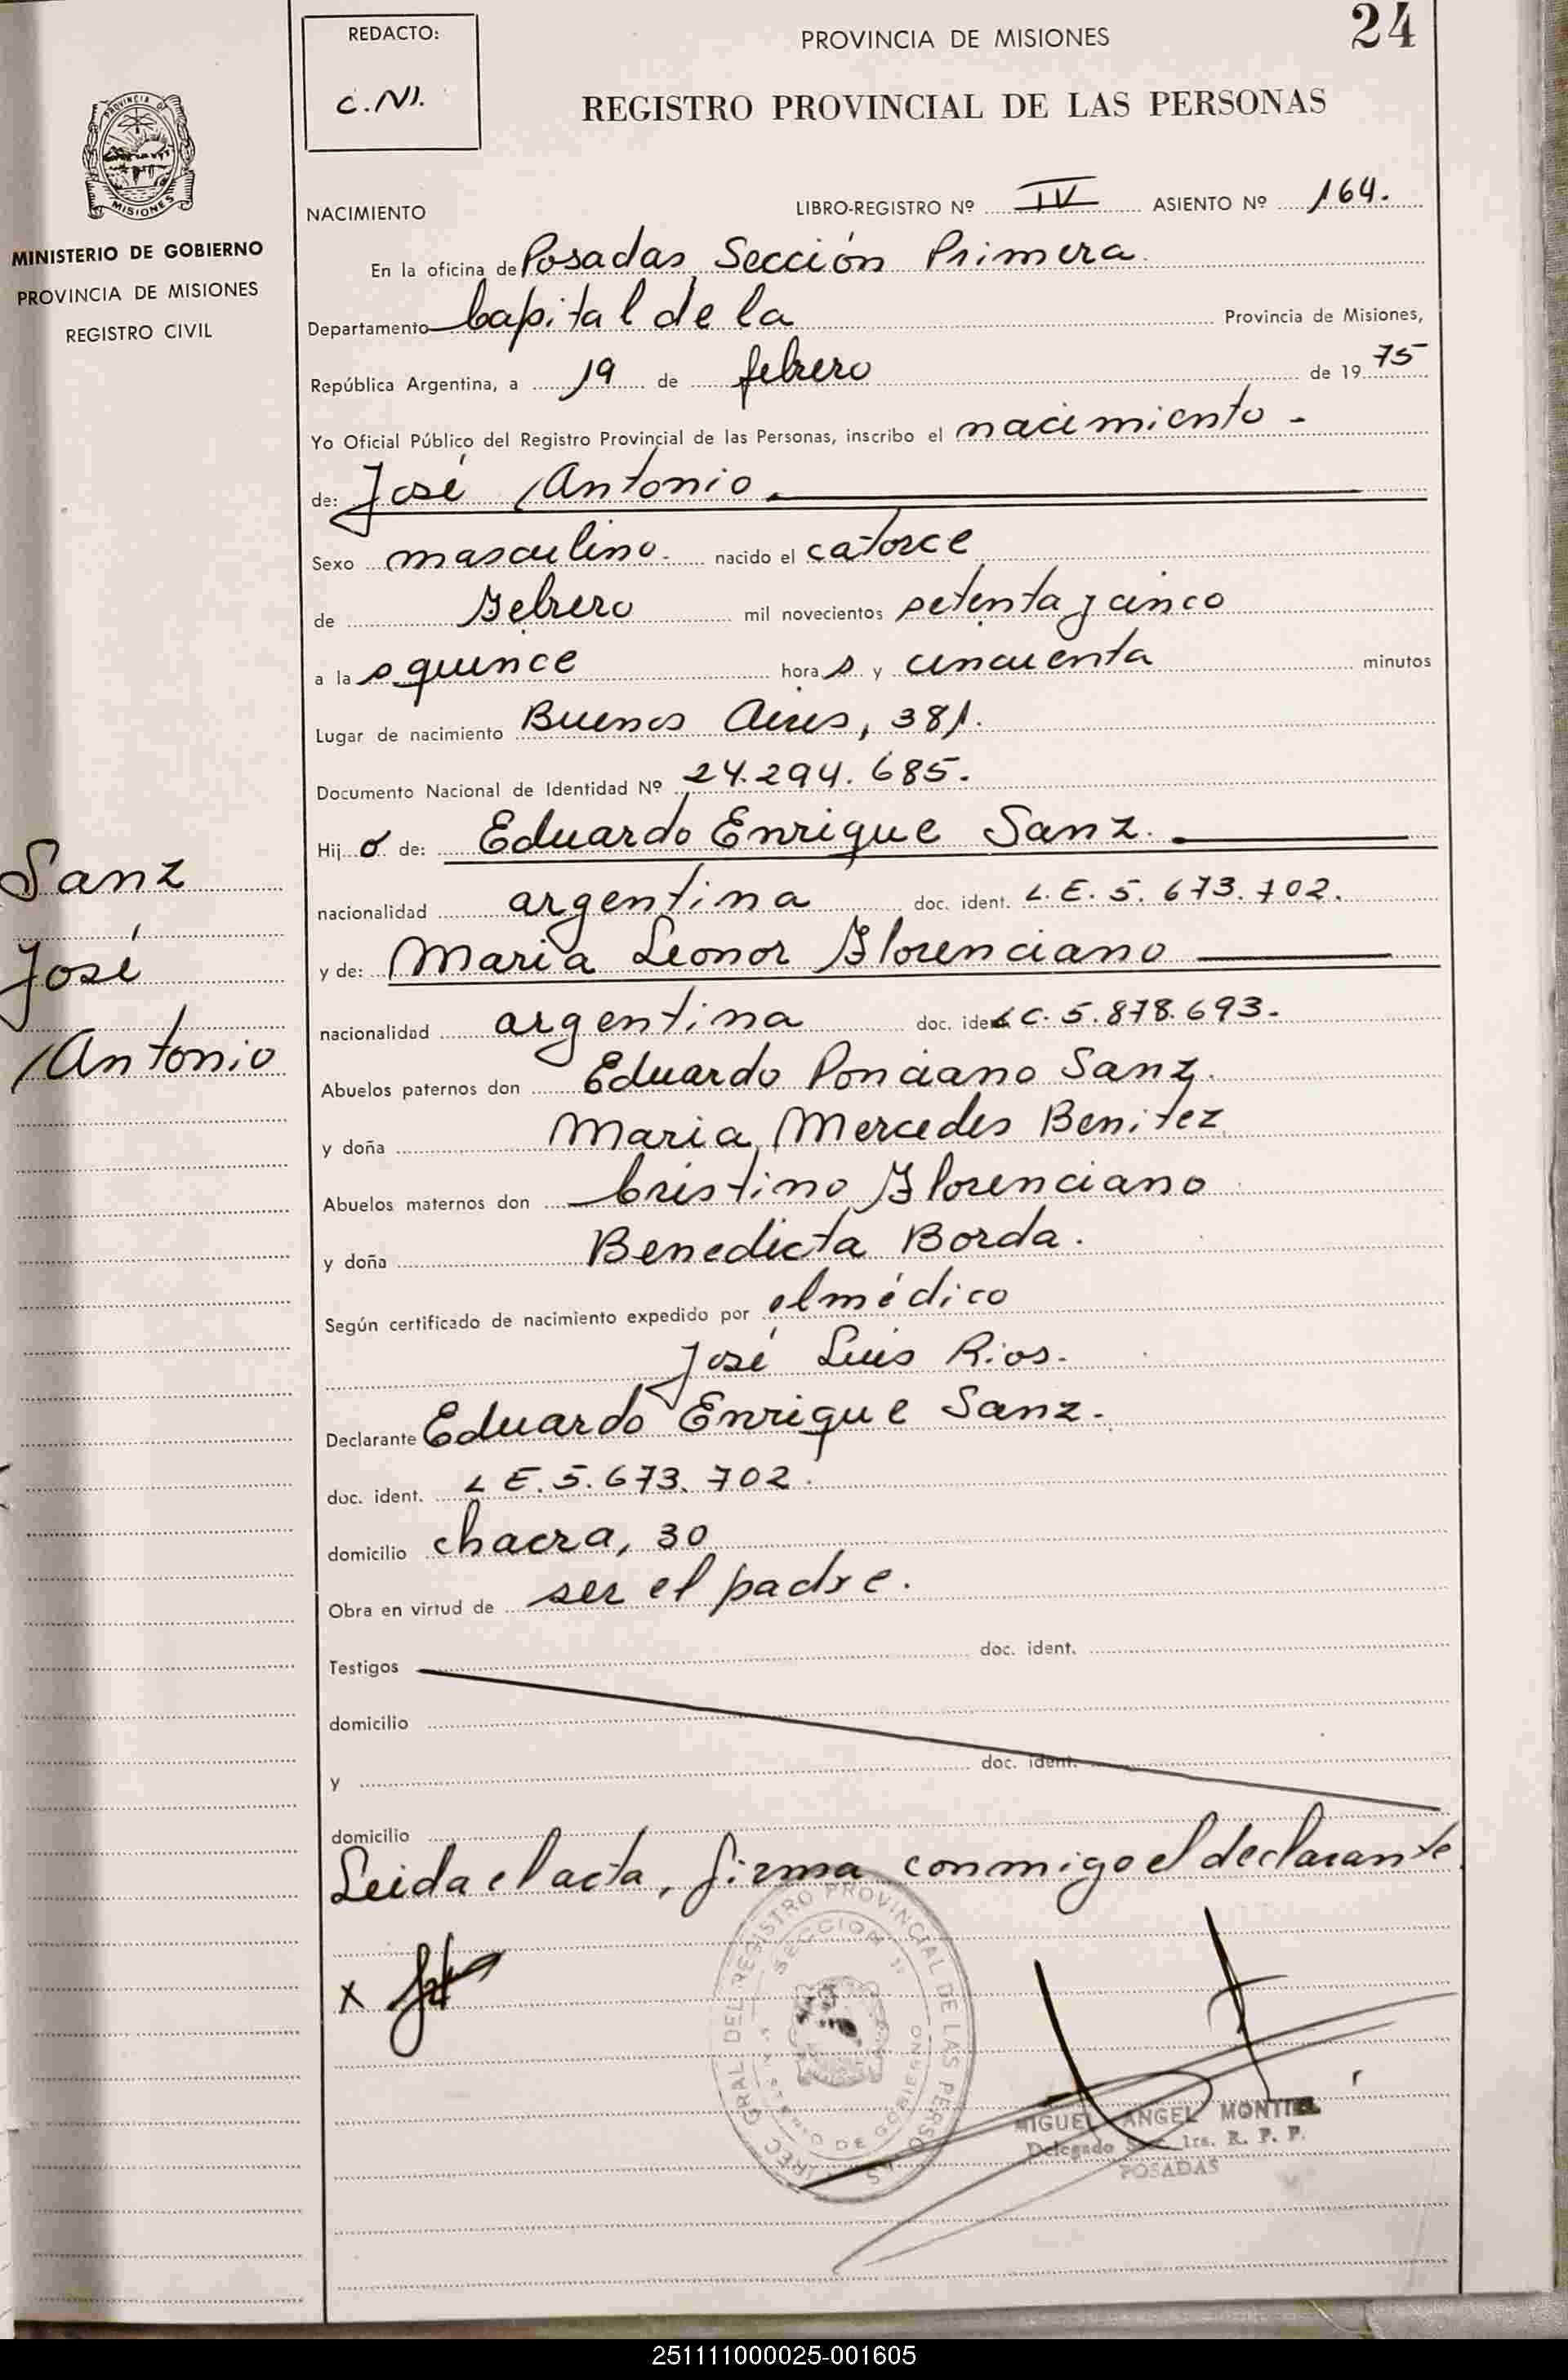 24
REDACTO:
C.N.
PROVINCIA DE MISIONES
REGISTRO PROVINCIAL DE LAS PERSONAS
MISIONES
MINISTERIO DE GOBIERNO
PROVINCIA DE MISIONES
REGISTRO CIVIL
NACIMIENTO LIBRO-REGISTRO Nº IV ASIENTO Nº 164.
En la oficina de Posadas Sección Primera.
Departamento Capital de la Provincia de Misiones,
República Argentina, a 19 de febrero de 1975
Yo Oficial Público del Registro Provincial de las Personas, inscribo el nacimiento -
de: José Antonio.
Sexo masculino. nacido el catorce
de Febrero mil novecientos setenta y cinco
a las quince horas y cincuenta minutos
Lugar de nacimiento Buenos Aires, 381.
Documento Nacional de Identidad Nº 24.294.685.
Hijo de: Eduardo Enrique Sanz.
nacionalidad argentina doc. ident. L.E. 5.673.702.
y de: Maria Leonor Florenciano
nacionalidad argentina doc. ident. L C. 5.878.693.
Abuelos paternos don Eduardo Ponciano Sanz.
y doña Maria Mercedes Benitez
Abuelos maternos don Cristino Florenciano
y doña Benedicta Borda.
Según certificado de nacimiento expedido por el médico
José Luis Rios.
Declarante Eduardo Enrique Sanz.
doc. ident. L E. 5.673.702.
domicilio chacra, 30
Obra en virtud de ser el padre.
Testigos doc. ident.
domicilio
y doc. ident.
domicilio
Leida el acta, firma conmigo el declarante
x
Sanz
José
Antonio
DIREC. GRAL DEL REGISTRO PROVINCIAL DE LAS PERSONAS
SECCION 1ª
MINISTERIO DE GOBIERNO
MIGUEL ANGEL MONTIEL
Delegado Secc. 1ra. R. P. P.
POSADAS
251111000025-001605